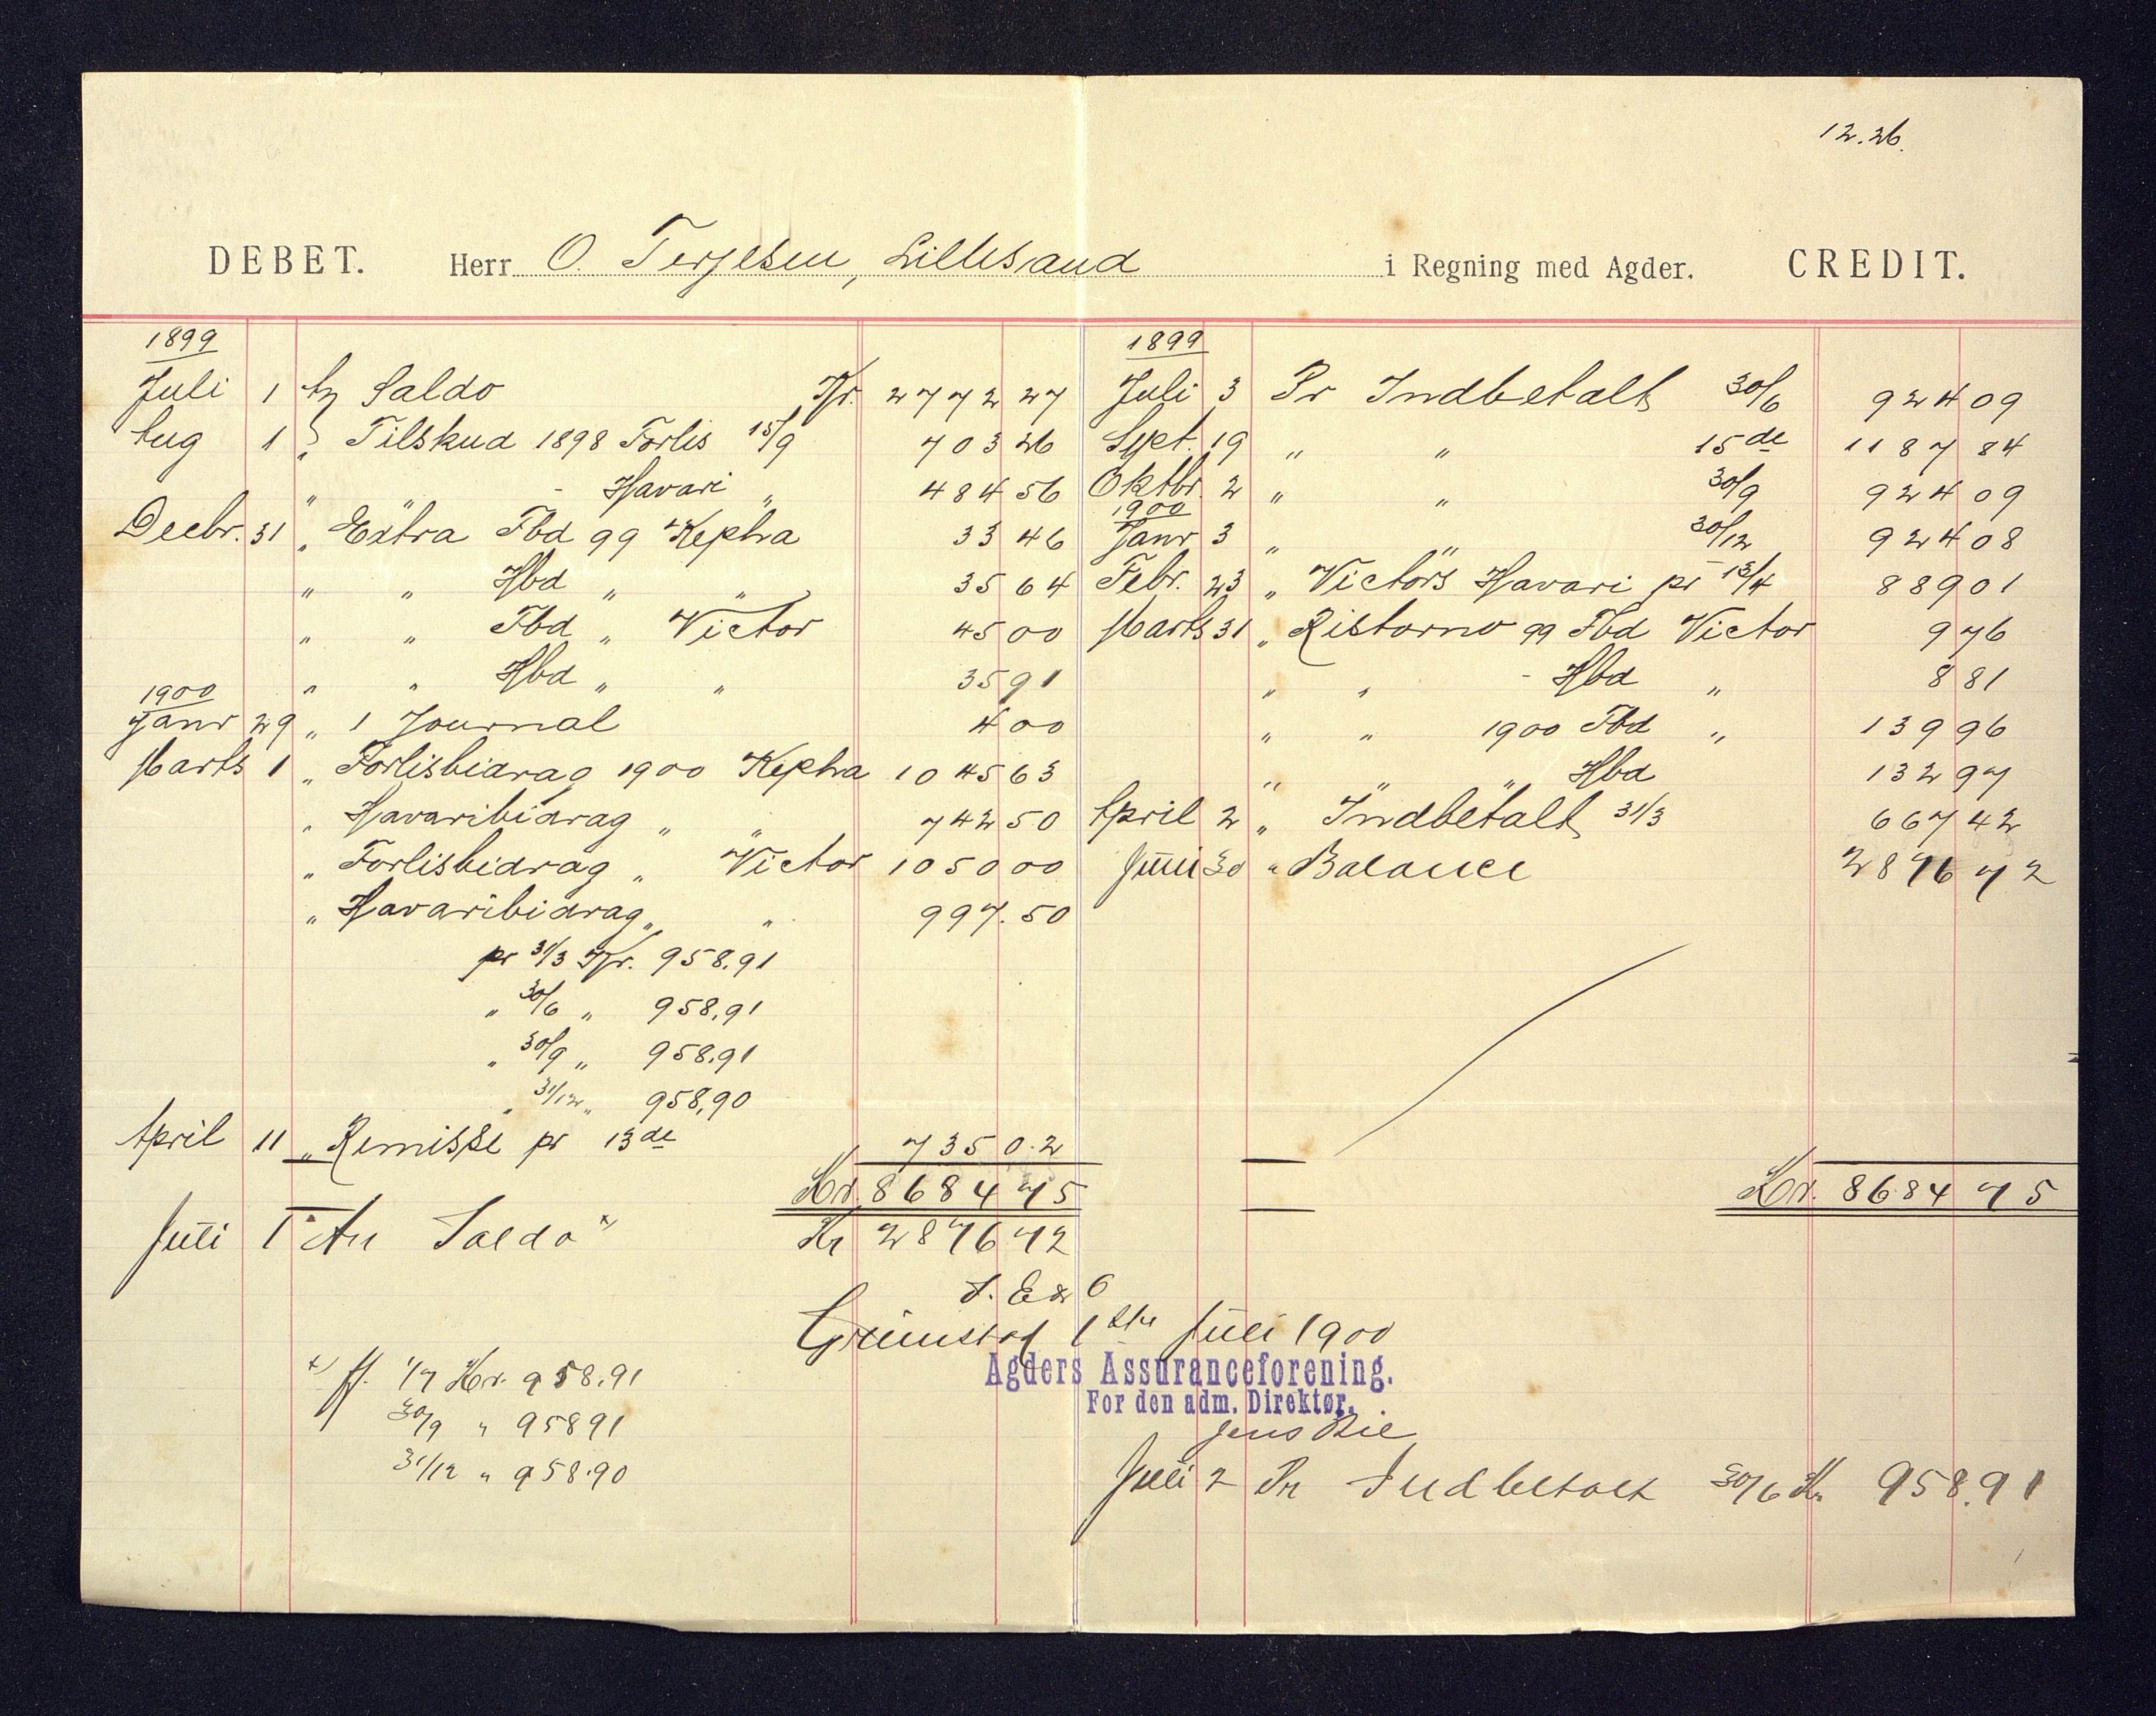 12.26.
DEBET. Herr O. Terjesen, Lillesand i Regning med Agder. CREDIT.
1899
Juli 1 An Saldo Kr. 2772 27
Aug 1 " Tilskud 1898 Forlis 15/9 703 26
" - Havari " 484 56
Decbr. 31 " Extra Fbd 99 Kepha 33 46
" " Hbd " " 35 64
" " Fbd " Victor 45 00
" " Hbd " " 35 91
1900
Janr 29 " 1 Journal 4 00
Marts 1 " Forlisbidrag 1900 Kepha 1045 63
" Havaribidrag " " 742 50
" Forlisbidrag " Victor 1050 00
" Havaribidrag " " 997.50
pr 31/3 Kr. 958.91
" 30/6 " 958.91
" 30/9 " 958.91
" 31/12 " 958.90
April 11 " Remisse pr 13de 735 0.2
Kr. 8684 75
Juli 1 An Saldo x) Kr 2876 72
1899
Juli 3 Pr Indbetalt 30/6 924 09
Sept. 19 " " 15de 1187 84
Oktbr. 2 " " 30/9 924 09
1900
Janr 3 " " 30/12 924 08
Febr. 23 " Victors Havari pr 13/4 889 01
Marts 31 " Ristorno 99 Fbd Victor 9 76
" " - Hbd " 8 81
" " 1900 Fbd " 139 96
" " " Hbd 132 97
April 2 " Indbetalt 31/3 667 42
Juni 30 " Balance 2876 72
Kr. 8684 75
S. E & O
Grimstad 1ste Juli 1900
Agders Assuranceforening.
For den adm. Direktør.
Jens Bie
x) pr. 1/7 Kr. 958.91
30/9 " 958 91
31/12 " 958.90
Juli 2 Pr Indbetalt 30/6 Kr 958.91